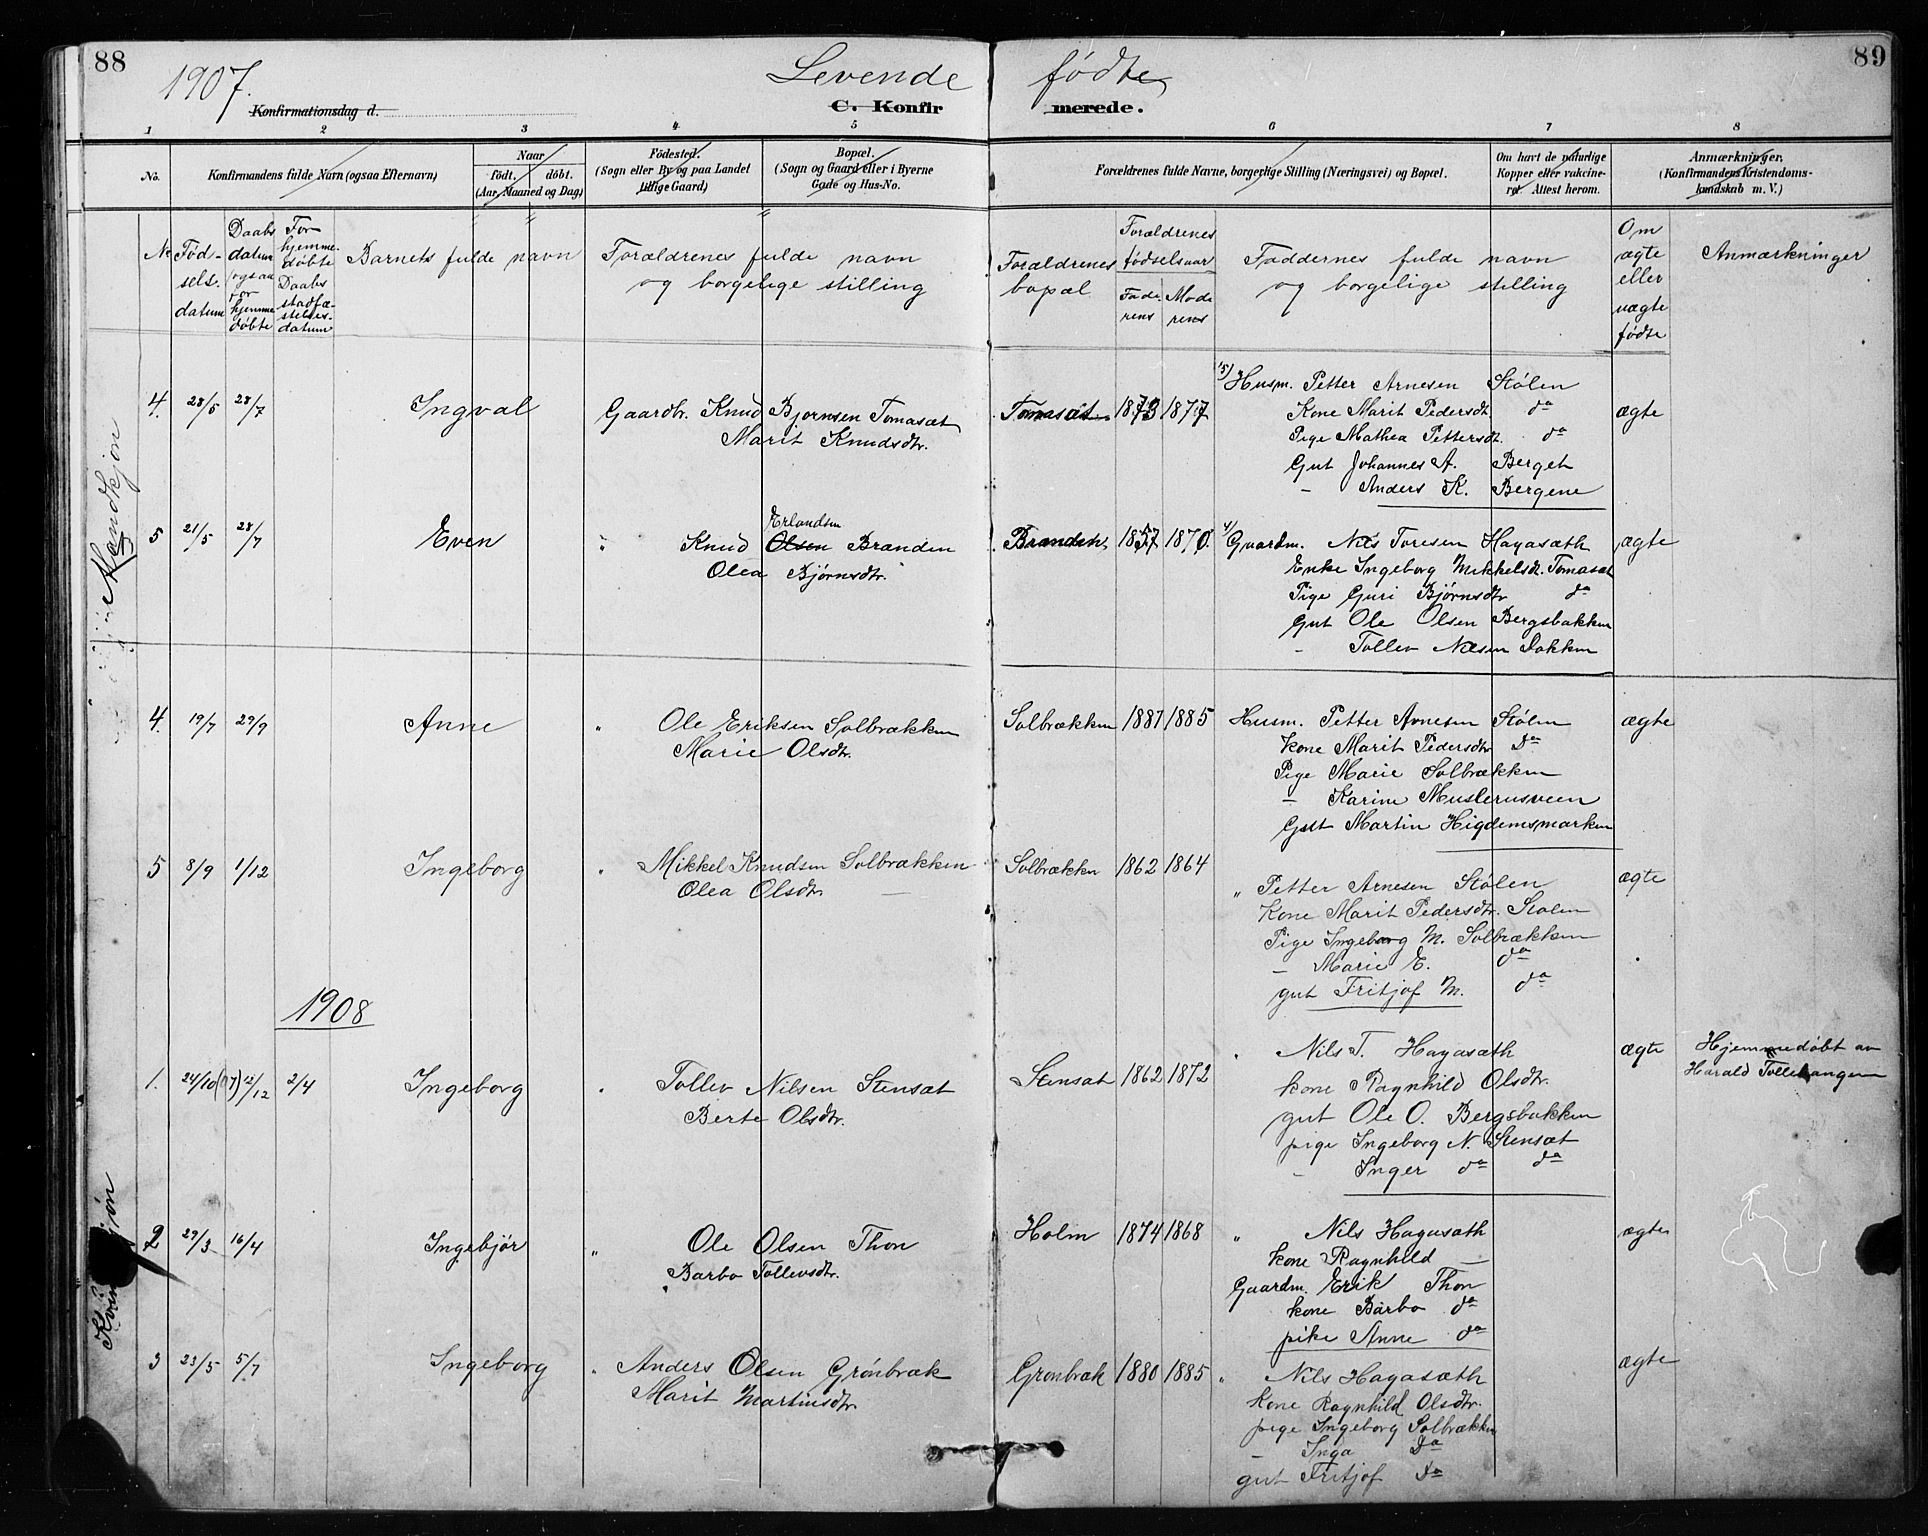 88
89
1907.
Levende fødte
Konfirmationsdag d.
C. Konfirmerede.
1 2 3 4 5 6 7 8
No.
Konfirmandens fulde Navn (ogsaa Efternavn)
Naar
født. døbt.
(Aar, Maaned og Dag)
Fødested.
(Sogn eller By og paa Landet
tillige Gaard)
Bopæl.
(Sogn og Gaard eller i Byerne
Gade og Hus-No.
Forældrenes fulde Navne, borgerlige Stilling (Næringsvei) og Bopæl.
Om havt de naturlige
Kopper eller vakcine-
ret. Attest herom.
Anmærkninger.
(Konfirmandens Kristendoms-
kundskab m. V.)
No
Fød-
sels.
datum
Daabs
datum
ogsaa
for
hjemme
døbte
For
hjemme-
døbte
Daabs
stadfæ-
stelses-
datum
Barnets fulde navn
Forældrenes fulde navn
og borgelige stilling
Forældrenes
bopæl
Forældrenes
fødselsaar
Fade
rens
Mode
rens
Faddernes fulde navn
og borgelige stilling
Om
ægte
eller
uægte
fødte
Anmærkninger
Mandkjøn
4. 28/5 28/7 Ingval Gaardbr. Knud Bjornsen Tomasæt
Marit Knudsdtr.
Tomasæt 1873 1877
Husm. Petter Arnesen Stølen
Kone Marit Pedersdt. do
Pige Mathea Pettersdt. do
Gut Johannes A. Berget
- Anders K. Bergene
ægte
5 21/5 28/7 Even " Knud Olsen Erlandsen Branden
Olea Bjørnsdtr.
Branden 1857 1870
Gaardm. Nils Toresen Hagasæth
Enke Ingeborg Mikkelsdt. Tomasæt
Pige Guri Bjørnsdtr do
Gut Ole Olsen Bergsbakken
- Tollev Nilsen Dokken
ægte
4. 19/7 29/9 Anne " Ole Eriksen Solbrækken
Marie Olsdtr.
Solbrækken 1887 1885
Husm. Petter Arnesen Stølen
Kone Marit Pedersdtr Do
Pige Marie Solbrækken
- Karine Muslerusveen
Gut Martin Higdemsmarken
ægte
5 8/9 1/12 Ingeborg " Mikkel Knudsen Solbrækken
Olea Olsdtr. —
Solbrækken 1862 1864
" Petter Arnesen Stølen
Kone Marit Pedersdtr. Stølen
Pige Ingeborg M. Solbrækken
- Marie E. do
gut Fritjof M. do
ægte
1908
1. 24/10 (07) 12/12 2/4 Ingeborg " Tollev Nilsen Stensæt
Berte Olsdtr.
Stensæt 1862 1872
" Nils T. Hagasæth
kone Ragnhild Olsdtr.
gut Ole O. Bergsbakken
pige Ingeborg N. Stensæt
- Inger do do
ægte
Hjemmedøbt av
Harald Tollehaugen
2 29/3 16/4 Ingebjør " Ole Olsen Thon
Barbo Tollevsdtr.
Holm 1874 1868
" Nils Hagasæth
kone Ragnhild —
Gaardm. Erik Thon
kone Barbo do
pike Anne do
ægte
3 23/5 5/7 Ingeborg " Anders Olsen Grønbræk
Marit Martinsdtr.
Grønbræk 1880 1885
" Nils Hagasæth
kone Ragnhild Olsdtr.
pige Ingeborg Solbrækken
- Inga Do
gut Fritjof do
ægte